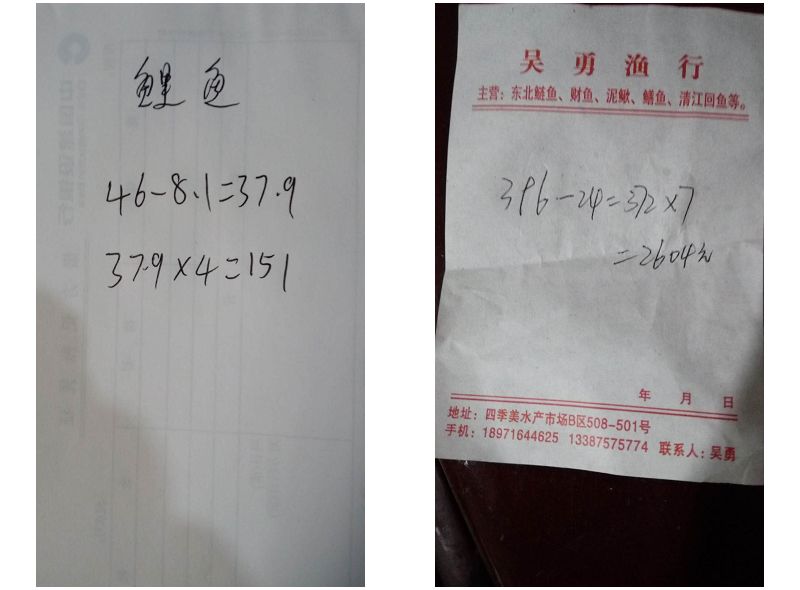 鲤鱼
46-8.1=37.9
37.9×4=151
吴勇渔行
主营：东北鲢鱼、财鱼、泥鳅、鳝鱼、清江回鱼等。
396-24=372×7
=2604元
年 月 日
地址：四季美水产市场B区508-501号
手机：18971644625 13387575774 联系人：吴勇